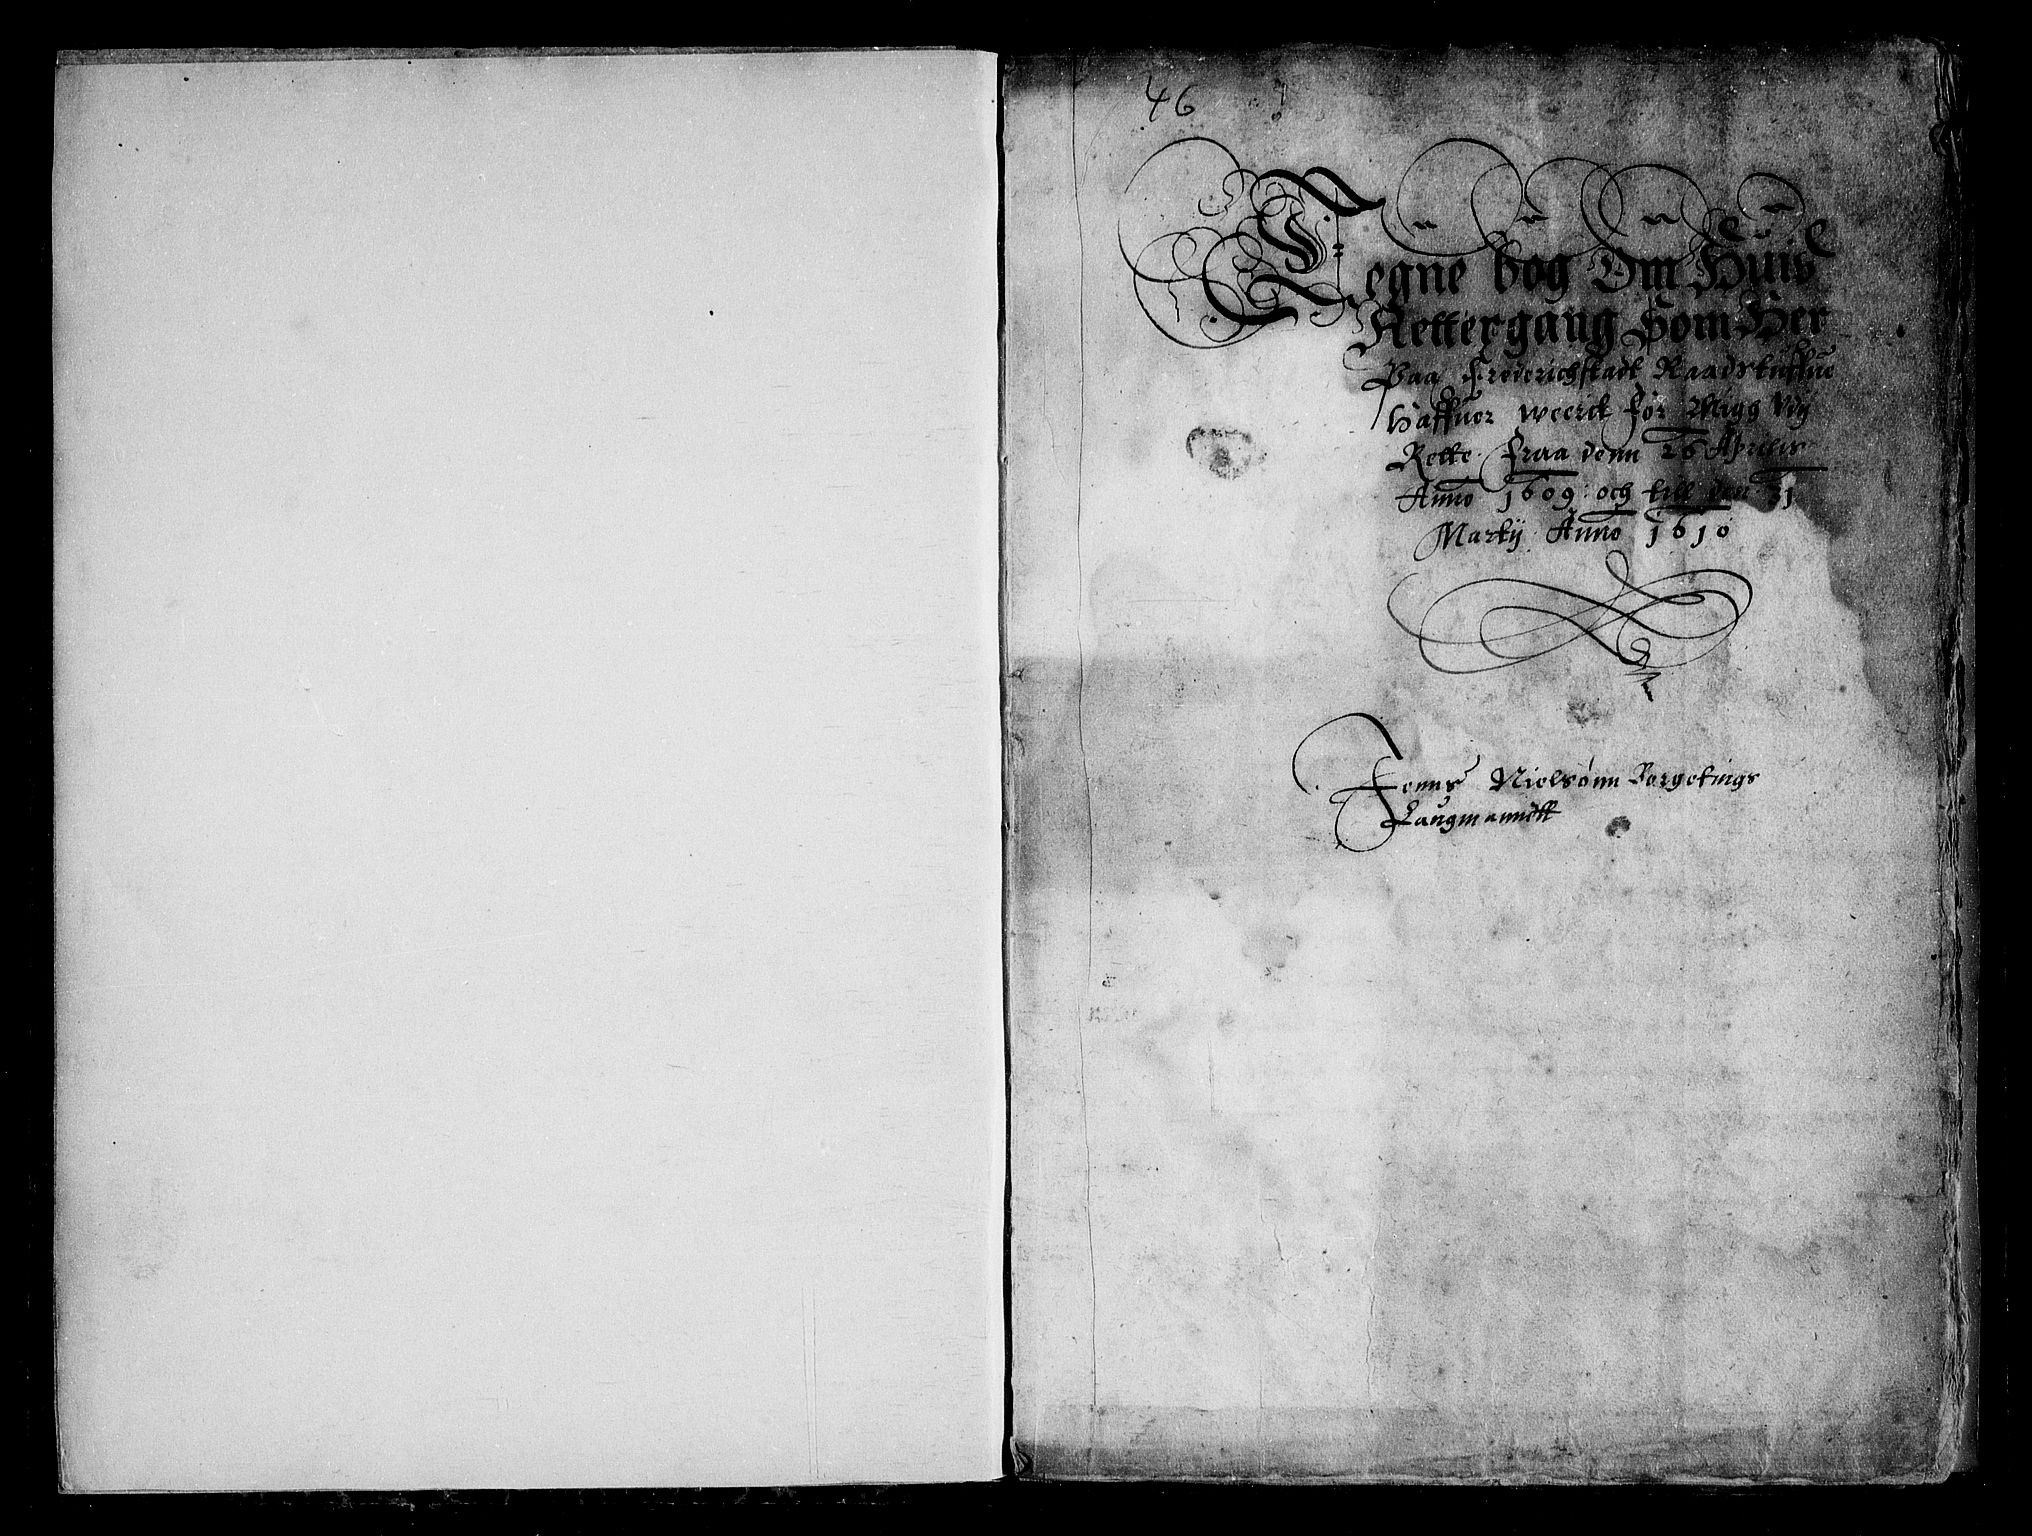 46
Tegne bog Om Huis
Rettergang Som Her
Paa Frederichstadt Raadstuffue
Haffuer weerit for Migg Vdj
Rette fraa denn 26 Aprilis
Anno 1609 och till den 31
Martij Anno 1610
Jenns Nielsønn Borgetings
Laugmanndtt